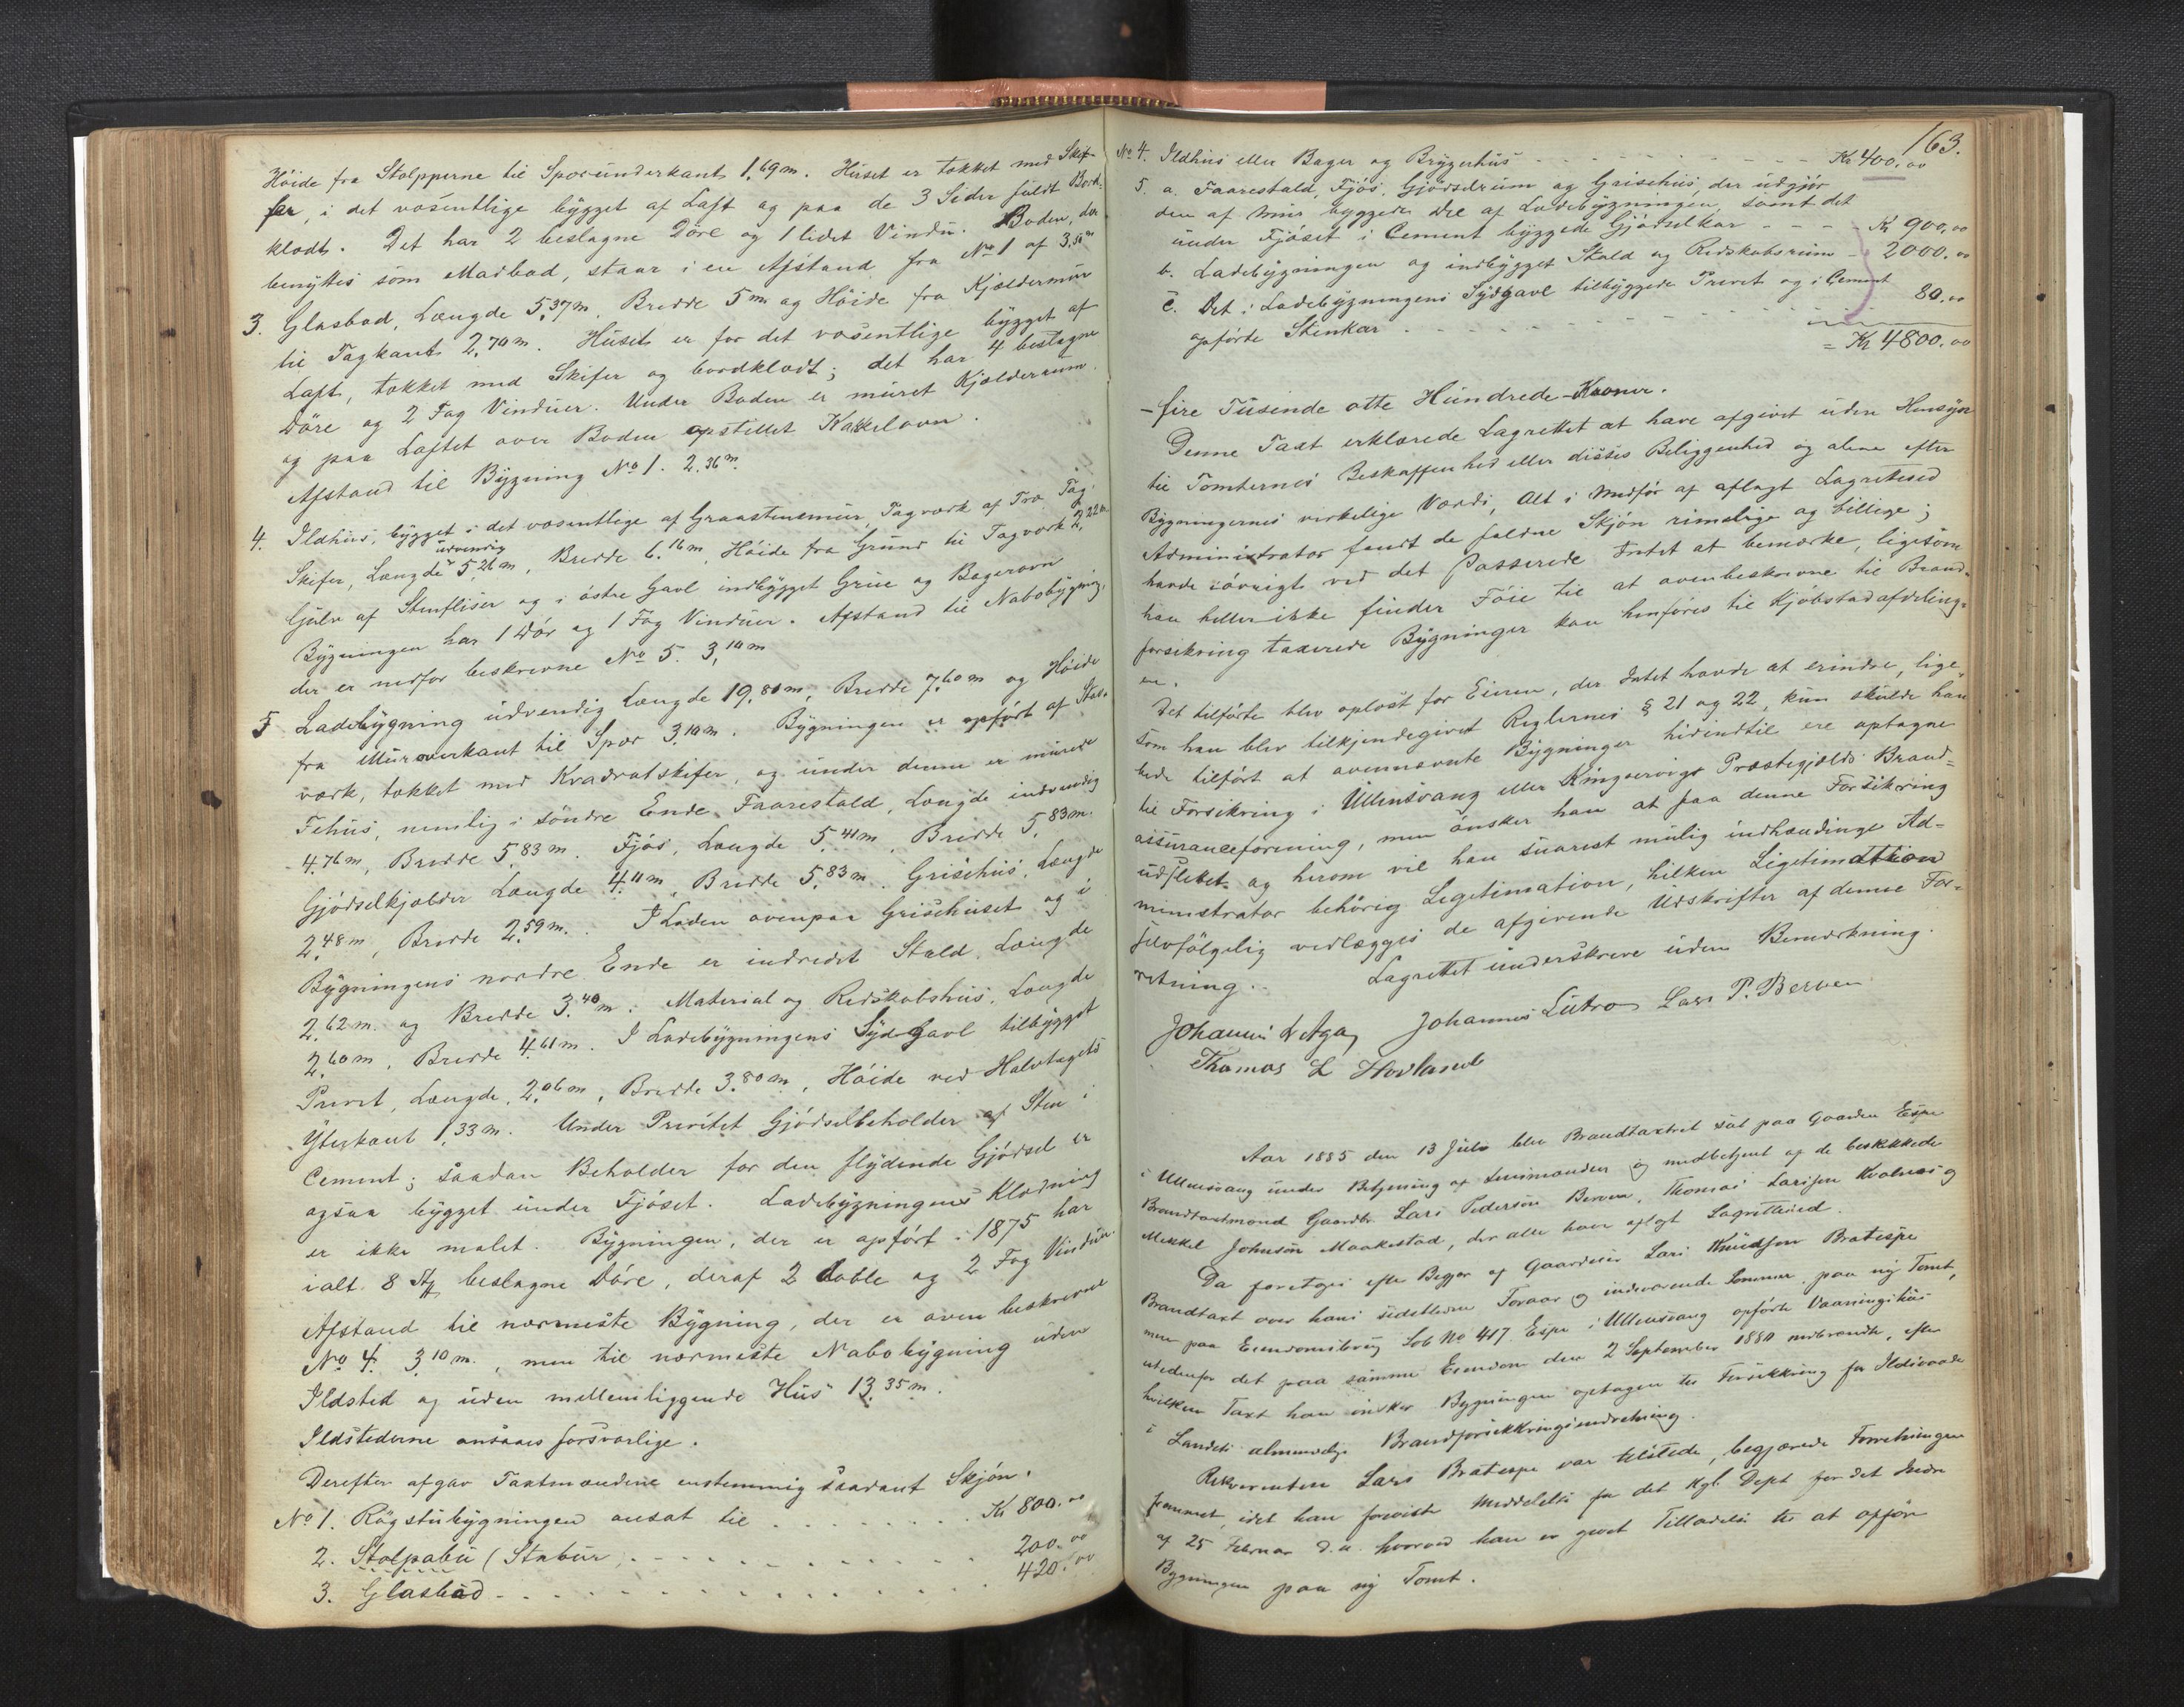 Höide fra Stolpperne til Sporunderkant 1.69 m. Huset er tækket med Skif-
fer, i det væsentlige bygget af Laft og paa de 3 Sider fuldt Bord-
klædt. Det har 2 beslagne Döre og 1 lidet Vindu. Boden, der
benyttes som Madbod, staar i en Afstand fra No 1 af 3.50 m
3. Glasbod, Længde 5.37 m, Bredde 5 m og Höide fra Kjældermur
til Tagkant 2.70 m. Huset er for det væsentlige bygget af
Laft, tækket med Skifer og bordklædt; det har 4 beslagne
Döre og 2 Fag Vinduer. Under Boden er muret Kjælderrum
og paa Laftet over Boden opstillet Kakkelovn.
Afstand til Bygning No 1. 2.36 m.
4. Ildhus, bygget i det væsentlige af Graastensmur, Tagværk af Træ. Tag:
Skifer, Længde udvendig 5.26 m, Bredde 6.16 m, Höide fra Grund til Tagværk 2.22 m
Gulv af Stenfliser og i östre Gavl indbygget Grue og Bagerovn
Bygningen har 1 Dör og 1 Fag Vinduer. Afstand til Nabobygning,
der er nedfor beskrevne No 5. 3.10 m
5 Ladebygning udvendig Længde 19.80 m, Bredde 7.60 m og Höide
fra Muroverkant til Spor 3.10 m. Bygningen er opfört af Stav-
værk, tækket med Kvadratskifer, og under denne er murede
Fehus, nemlig i söndre Ende Faarestald, Længde indvendig
4.76 m, Bredde 5.83 m. Fjös, Længde 5.41 m, Bredde 5.83 m.
Gjödselkjælder Længde 4.11 m, Bredde 5.83 m. Grisehus, Længde
2.48 m, Bredde 2.59 m. I Laden ovenpaa Grisehuset og i
Bygningens nordre Ende er indredet Stald, Længde
2.62 m. og Bredde 3.40 m: Material og Redskabshus, Længde
2.60 m, Bredde 4.61 m. I Ladebygningens Sydgavl tilbygget
Privet, Længde, 2.06 m, Bredde 3.80 m, Höide ved Halvtagets
Yterkant 1.33 m. Under Privetet Gjödselbeholder af Sten i
Cement; saadan Beholder for den flydende Gjödsel er
ogsaa bygget under Fjöset. Ladebygningens Klædning
er ikke malet. Bygningen, der er opfört i 1875 har
ialt 8 St beslagne Döre, deraf 2 doble og 2 Fag Vinduer.
Afstand til nærmeste Bygning, der er oven beskrevne
No 4. 3.10 m., men til nærmeste Nabobygning uden
Ildsted og uden mellemliggende Hus 13.35 m.
Ildstederne ansaaes forsvarlige.
Derefter afgav Taxtmændene enstemmig saadant Skjön.
No 1. Rögstubygningen ansat til . . . . . . . . Kr 800.00
2. Stolpabu (Stabur) . - - - - - - - - 200.00
3. Glasbod - . . . . . . . . . . . . 420.00
163.
No 4. Ildhus eller Bager og Bryggerhus - - - - - - - - - - Kr 400.00
5. a. Faarestald, Fjös, Gjödselrum og Grisehus, der udgjör
den af Mur byggede Del af Ladebygningen, samt det
under Fjöset i Cement byggede Gjödselkar - - - - Kr 900.00
b. Ladebygningen og indbygget Stald og Redskabsrum - 2000.00
c. Det i Ladebygningens Sydgavl tilbyggede Privet og i Cement
opförte Stenkar . - - - - - - - - - 80.00
= Kr 4800.00
- fire Tusende otte Hundrede - Kroner.
Denne Taxt erklærede Lagrettet at have afgivet uden Hensyn
til Tomternes Beskaffenhed eller disses Beliggenhed og alene efter
Bygningernes virkelige Værdi, Alt i Medför af aflagt Lagrettesed
Administrator fandt de faldne Skjön rimelige og billige;
havde iövrigt ved det Passerede Intet at bemærke, ligesom
han heller ikke finder Föie til at ovenbeskrevne til Brand-
forsikring taxerede Bygninger kan henföres til Kjöbstadafdeling-
en.
Det tilförte blev oplæst for Eieren, der Intet havde at erindre, lige-
som han blev tilkjendegivet Reglernes § 21 og 22, kun skulde han
bede tilfört at ovennævnte Bygninger hidindtil ere optagne
til Forsikring i Ullensvang eller Kingservigs Præstegjælds Brand-
assuranceforening, men önsker han at faa denne Forsikring
udslettet og herom vil han snarest mulig indhændige Ad-
ministrator behörig Legitimation, hvilken Legitimation
selvfölgelig vedlægges de afgivende Udskrifter af denne For-
retning. Lagrettet underskrive uden Bemærkning.
Johannes L Aga, Johannes Lutro Lars P. Berven
Thomas L Hovland
Aar 1885 den 13 Juli blev Brandtaxtret sat paa Gaarden Espe
i Ullensvang under Betjening af Lensmanden og medbetjent af de beskikkede
Brandtaxtmænd Gaardbr. Lars Pedersen Berven, Thomas Larssen Kvalnes og
Mikkel Johnsön Maakestad, der alle have aflagt Lagrettesed.
Da foretoges efter Begjær af Gaardeier Lars Knudsen Bratespe
Brandtaxt over hans sidstleden Foraar og indeværende Sommer paa ny Tomt,
men paa Eiendomsbrug Löb No 417 Espe i Ullensvang opförte Vaaningshus
istedenfor det paa samme Eiendom den 2 September 1884 nedbrændte, efter
hvilken Taxt han önsker Bygningen optagen til Forsikkring for Ildsvaade
i Landets almindelige Brandforsikkringsindretning.
Rekvirenten Lars Bratespe var tilstede, begjærede Forretningen
fremmet, idet han foreviste Meddelelse fra det Kgl. Dept for det Indre
af 25 Februar d. a. hvorved han er givet Tilladelse til at opföre
Bygningen paa ny Tomt.